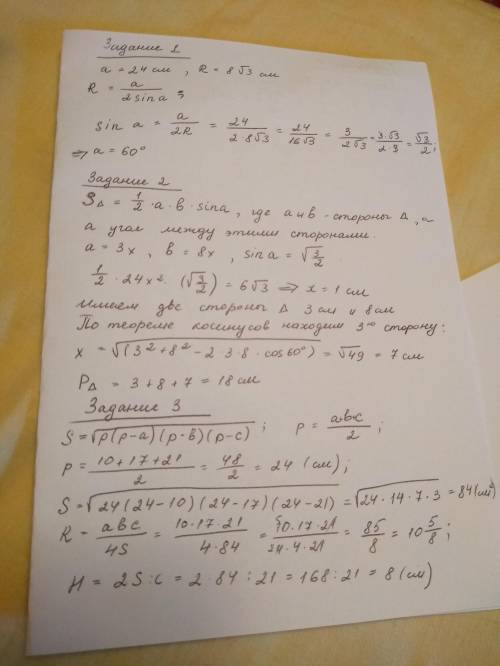 Задание 1
a = 24 см , R = 8√3 см
R = a/(2 sin a) ;
sin a = a/2R = 24/(2·8√3) = 24/(16√3) = 3/(2√3) = 3·√3/(2·3) = √3/2 ;
=> a = 60°
Задание 2
S△ = 1/2 · a · b · sin a , где a и b - стороны △, а
a угол между этими сторонами.
a = 3x , b = 8x , sin a = √(3/2) .
1/2 · 24x² · (√(3/2)) = 6√3 => x = 1 см
Имеем две стороны △ 3 см и 8 см
По теореме косинусов находим 3-ю сторону:
x = √(3² + 8² - 2·3·8 · cos 60°) = √49 = 7 см
P△ = 3 + 8 + 7 = 18 см
Задание 3
S = √(p(p-a)(p-b)(p-c)) ; p = abc/2 ;
p = (10+17+21)/2 = 48/2 = 24 (см) ;
S = √(24(24-10)(24-17)(24-21)) = √(24·14·7·3) = 84 (см²)
R = abc/4S = 10·17·21/(4·84) = 10·17·21/(21·4·21) = 85/8 = 10 5/8 ;
H = 2S : c = 2·84 : 21 = 168 : 21 = 8 (см)